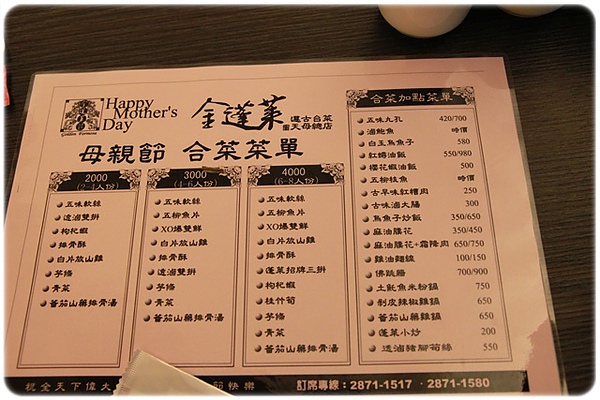 Happy
Mother's
Day
Golden Formosa
金蓬萊
遵古台菜
天母總店
母親節 合菜菜單
2000
(2-4人份)
五味軟絲
滷滷雙拼
枸杞蝦
排骨酥
白片放山雞
芋條
青菜
蕃茄山藥排骨湯
3000
(4-6人份)
五味軟絲
五柳魚片
XO爆雙鮮
白片放山雞
排骨酥
滷滷雙拼
芋條
青菜
蕃茄山藥排骨湯
4000
(6-8人份)
五味軟絲
五柳魚片
XO爆雙鮮
白片放山雞
排骨酥
蓬萊招牌三拼
枸杞蝦
桂竹筍
芋條
青菜
蕃茄山藥排骨湯
合菜加點菜單
五味九孔 420/700
滷鮑魚 時價
白玉烏魚子 580
紅蟳油飯 550/980
櫻花蝦油飯 500
五柳桂魚 時價
古早味紅糟肉 250
古味滷大腸 300
烏魚子炒飯 350/650
麻油腰花 350/450
麻油腰花+霜降肉 650/750
雞油麵線 100/150
佛跳牆 700/900
土魠魚米粉鍋 650
剝皮辣椒雞鍋 650
蕃茄山藥雞鍋 650
蓬萊小炒 200
滷豬腳筍絲 550
祝全天下偉大
節快樂
訂席專線：2871-1517 ·2871-1580